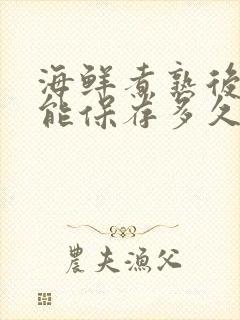 海鮮煮熟後
能保存多久
農夫漁父